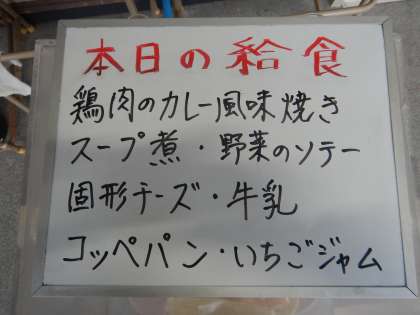 本日の給食
鶏肉のカレー風味焼き
スープ煮・野菜のソテー
固形チーズ・牛乳
コッペパン・いちごジャム